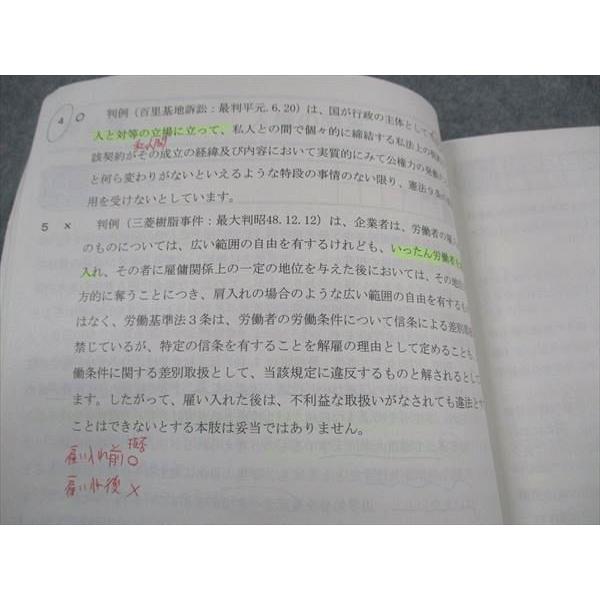 4 ○ 判例（百里基地訴訟：最判平元.6.20）は、国が行政の主体として
人と対等の立場に立って、私人との間で個々的に締結する私法上の契約
私人間
該契約がその成立の経緯及び内容において実質的にみて公権力の発動
と何ら変わりがないといえるような特段の事情のない限り、憲法9条の
用を受けないとしています。
5 × 判例（三菱樹脂事件：最大判昭48.12.12）は、企業者は、労働者の雇
のものについては、広い範囲の自由を有するけれども、いったん労働者を
入れ、その者に雇傭関係上の一定の地位を与えた後においては、その地位
方的に奪うことにつき、肩入れの場合のような広い範囲の自由を有するも
はなく、労働基準法3条は、労働者の労働条件について信条による差別
禁じているが、特定の信条を有することを解雇の理由として定めることも、
働条件に関する差別取扱として、当該規定に違反するものと解されるとし
ます。したがって、雇い入れた後は、不利益な取扱いがなされても違法と
ことはできないとする本肢は妥当ではありません。
拒否
雇い入れ前○
雇い入れ後 ×